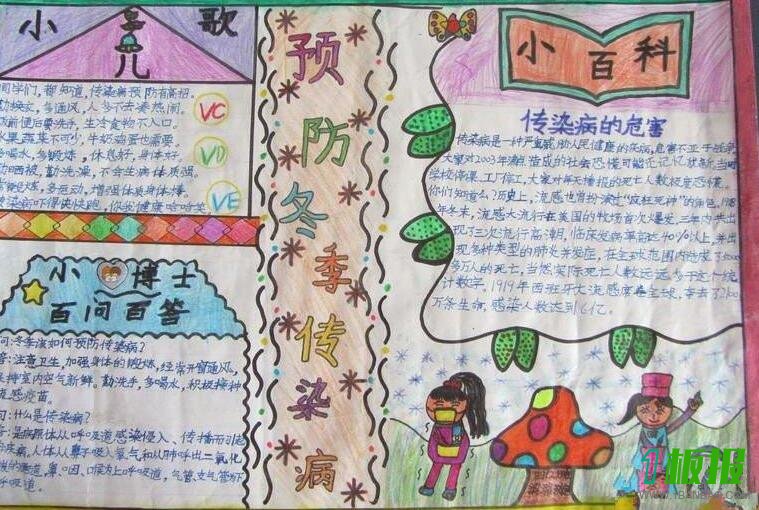 小儿歌
同学们,都知道,传染病预防有高招。
勤换衣,多通风,人多不去凑热闹。
饭前便后要洗手,生冷食物不入口。
水果蔬菜不可少,牛奶动蛋也需要。
多喝水,多锻炼,休息好,身体好。
勤晒被,勤洗澡,不会生病体质强。
锻炼,多运动,增强体质身体棒。
传染病吓得快快跑,你我健康哈哈笑。
VC
VD
VE
小博士
百问百答
问:冬季该如何预防传染病?
答:注意卫生,加强身体的锻炼,经常开窗通风,
保持室内空气新鲜,勤洗手,多喝水,积极接种
流感疫苗。
问:什么是传染病?
答:是病原体从呼吸道感染侵入、传播而引起
的疾病,人体从鼻子吸入氧气和从肺呼出二氧化
的通道,鼻、咽、喉为上呼吸道,气管、支气管为下
呼吸道。
预防冬季传染病
小百科
传染病的危害
传染病是一种严重威胁人民健康的疾病,危害不亚于战争,
大家对2003年造成的社会恐慌可能还记忆犹新,当时
学校停课,工厂停工,大家对每天播报的死亡人数极度恐慌。
你们知道么?历史上,流感也曾扮演过"疯狂死神"的角色,
年冬末,流感大流行在美国的牧场首次爆发,三年内共出
现了三次流行高潮,临床发病率高达40%以上,并出
现多种类型的肺炎并发症,在全球范围内造成了
多万人的死亡,当然实际死亡人数远远多于这个统
计数字,1919年西班牙大流感席卷全球,夺去了
万条生命,感染人数达到6亿。
板报
WWW.1BANBAO.COM